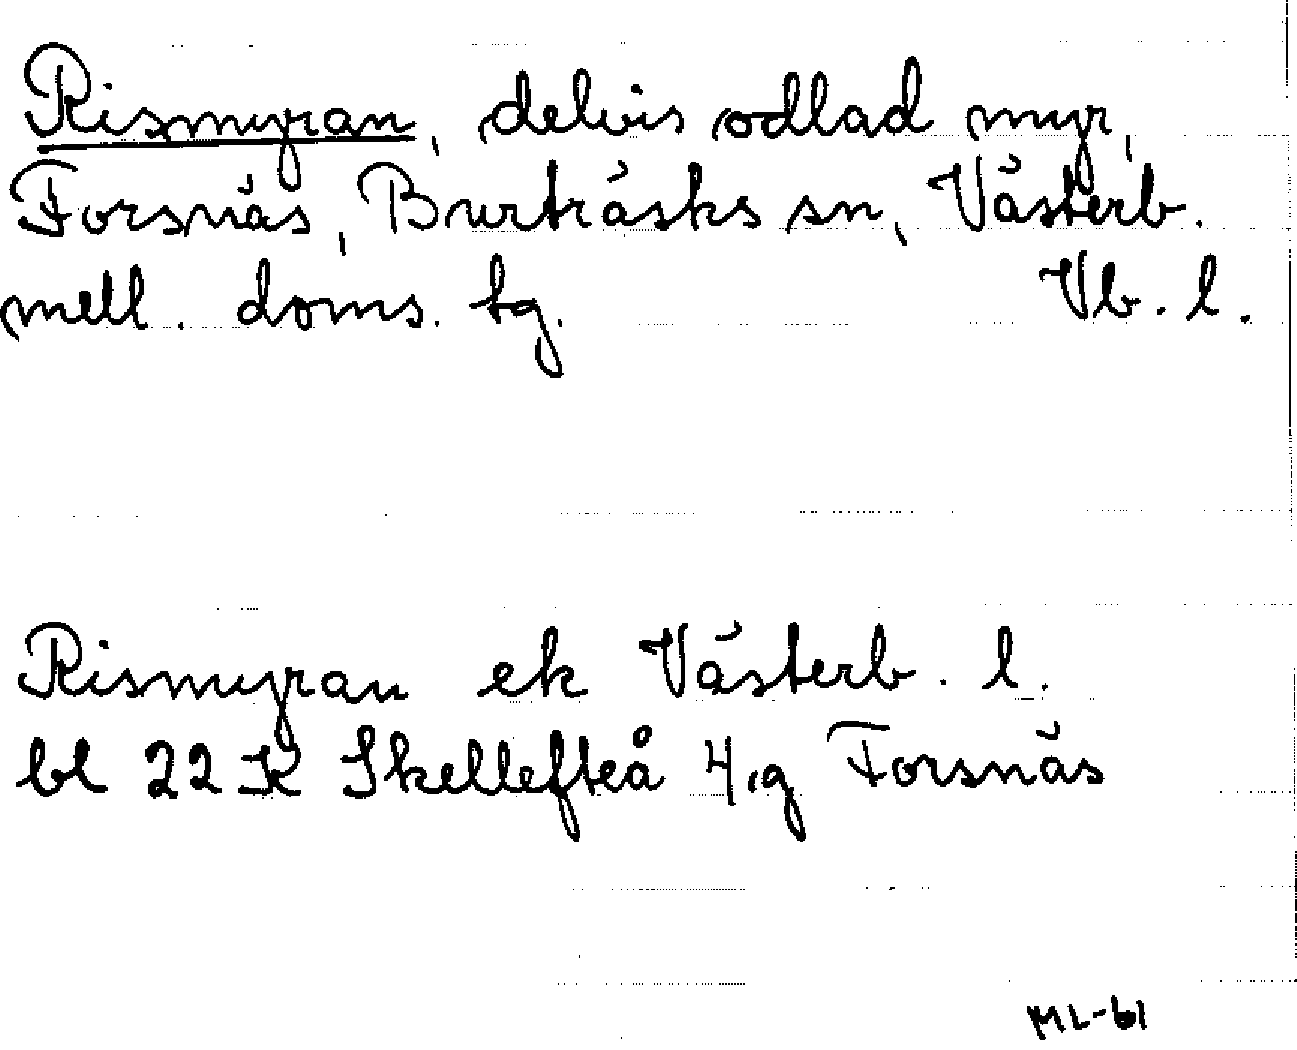 Rismyran, delvis odlad myr,
Forsnäs, Burträsks sn, Västerb.
mell. doms. tg. Vb. l.
Rismyran ek Västerb. l.
bl 22 K Skellefteå 4, g Forsnäs
ML-61